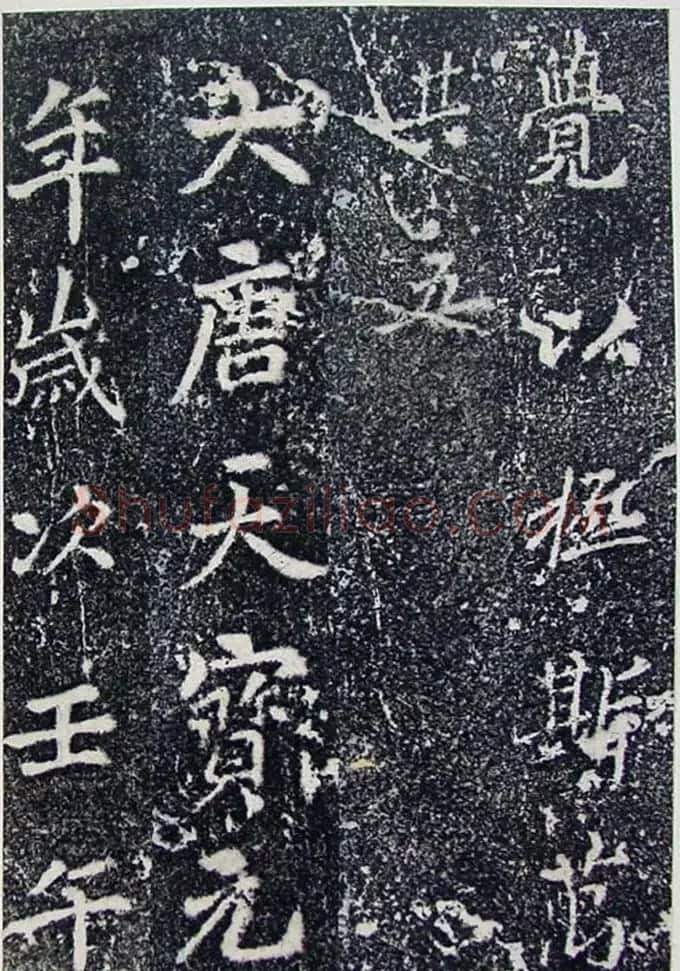 覺以拯斯
其五
大唐天寶元
年歲次壬午
Shufaziliao.COM